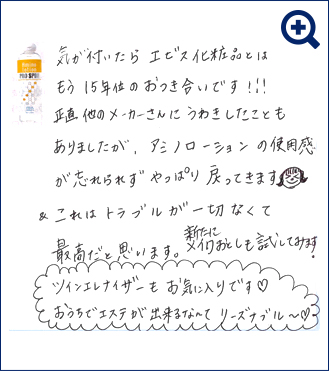 気が付いたら エビス化粧品とは
もう 15年位のおつき合いです!!!
正直他のメーカーさんに うわきしたことも
ありましたが、アミノローション の使用感
が忘れられず やっぱり 戻ってきます
& これは トラブルが一切なくて
最高だと思います。新たに メイクおとしも試してみます!
ツインエレナイザーも お気に入りです♡
おうちでエステが出来るなんて リーズナブル〜♡